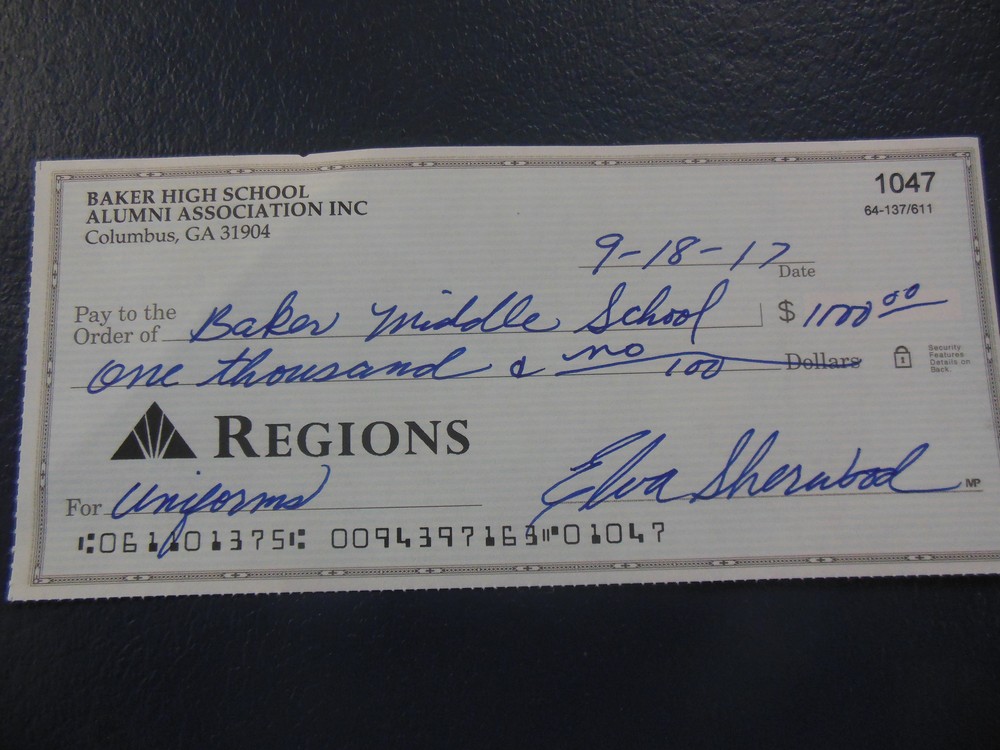 BAKER HIGH SCHOOL
ALUMNI ASSOCIATION INC
Columbus, GA 31904
1047
64-137/611
9-18-17
Date
Pay to the
Order of Baker Middle School $ 1000 00
One thousand & no/100 Dollars
Security
Features
Details on
Back.
REGIONS
For Uniforms Elva Sherwood MP
⑆061101375⑆ 0094397163⑈01047